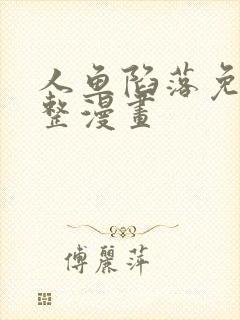 人鱼陷落免
整漫畫
傅麗萍